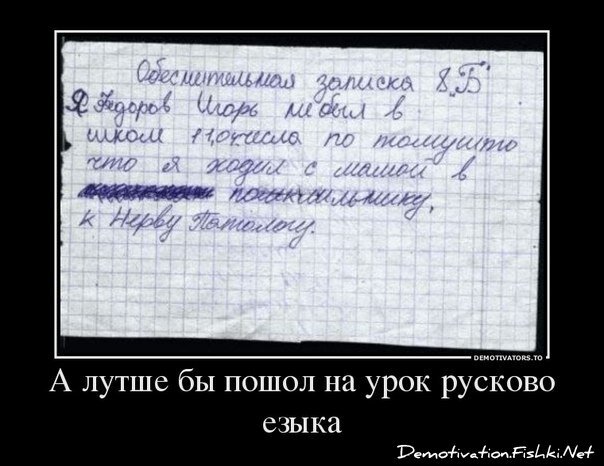 Обеснительная записка 8 „Б"
Я Федоров Игорь не был в
школи 11,04 числа по томушто
что я ходил с мамой в
к Нерву Патологу.
DEMOTIVATORS.TO
А лутше бы пошол на урок русково
езыка
Demotivation.Fishki.Net